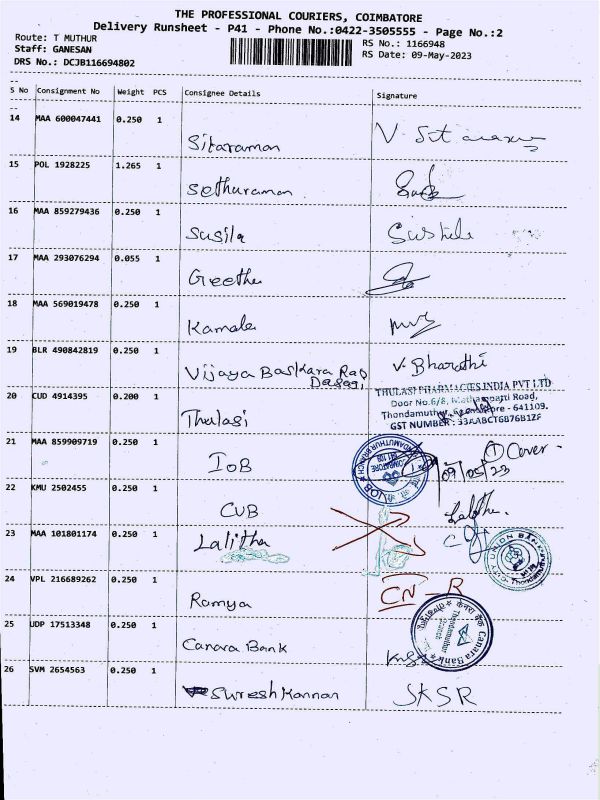 THE PROFESSIONAL COURIERS, COIMBATORE
Delivery Runsheet - P41 - Phone No.:0422-3505555 - Page No.:2
Route: T MUTHUR
Staff: GANESAN
DRS No.: DCJB116694802
RS No.: 1166948
RS Date: 09-May-2023
S No Consignment No Weight PCS Consignee Details Signature
14 MAA 600047441 0.250 1 Sitaraman
15 POL 1928225 1.265 1 Sethuraman
16 MAA 859279436 0.250 1 Susila
17 MAA 293076294 0.055 1 Geetha
18 MAA 569019478 0.250 1 Kamala
19 BLR 490842819 0.250 1 Vijaya Baskara Rao V. Bharathi
Dasagi
20 CUD 4914395 0.200 1 Thulasi
THULASI PHARMACIES INDIA PVT LTD
Door No.6/8, Mathampatti Road,
Thondamuthur, Coimbatore - 641109.
GST NUMBER: 33AABCT6876B1ZF
21 MAA 859909719 0.250 1 IOB
① Cover -
09/05/23
22 KMU 2502455 0.250 1 CUB
23 MAA 101801174 0.250 1 Lalitha
24 VPL 216689262 0.250 1 Ramya CN-R
25 UDP 17513348 0.250 1 Canara Bank
Canara Bank
Thondamuthur
Branch
26 SVM 2654563 0.250 1 Sureshkannan SKSR